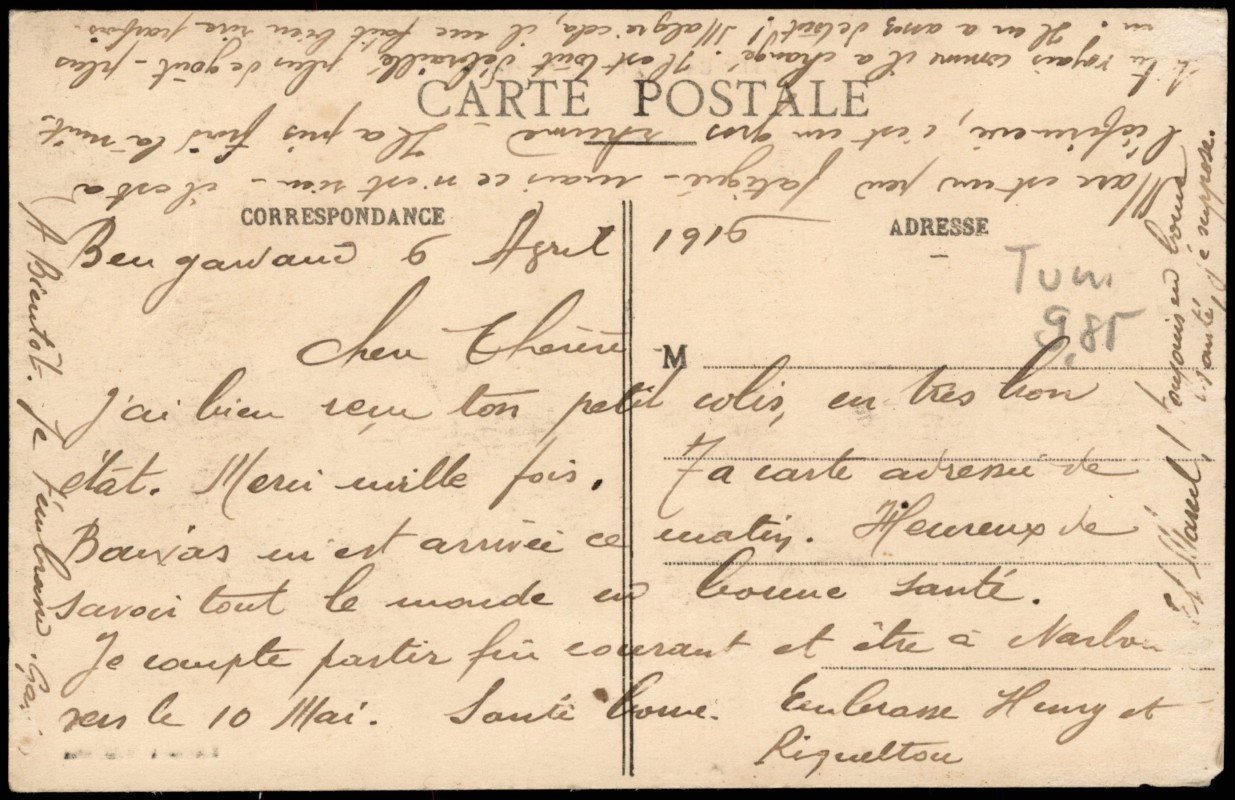 CARTE POSTALE
CORRESPONDANCE
ADRESSE
M
Tun
9,85
Ben gardane 6 Avril 1916
Chère Thérèse
J'ai bien reçu ton petit colis, en très bon
état. Merci mille fois. Ta carte adressée de
m'est arrivée ce matin. Heureux de
savoir tout le monde en bonne santé.
Je compte partir fin courant et être à Narbon
vers le 10 Mai. Santé bonne. Embrasse Henry et
Riquelton
Marc est un peu fatigué - mais ce n'est rien - il est à
l'infirmerie, c'est un gros rhume - Il a pris froid la nuit.
Si tu voyais comme il a changé. Il est tout débraillé, plus de goût - plus
Il en a assez Malgré cela, il me fait bien rire parfois.
A Bientôt. Je t'embrasse.
Et Marcel! Toujours en bonne
santé, je suppose.